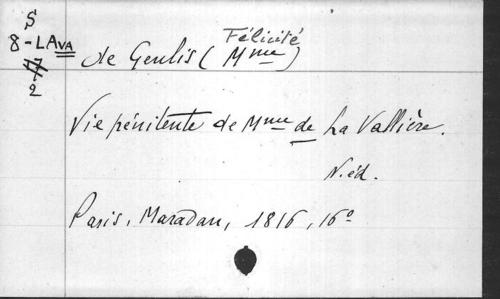 S
8-LAva
2
Félicité
de Genlis (Mme)
Vie pénitente de Mme de La Vallière.
N.éd.
Paris, Maradan, 1816, 16º